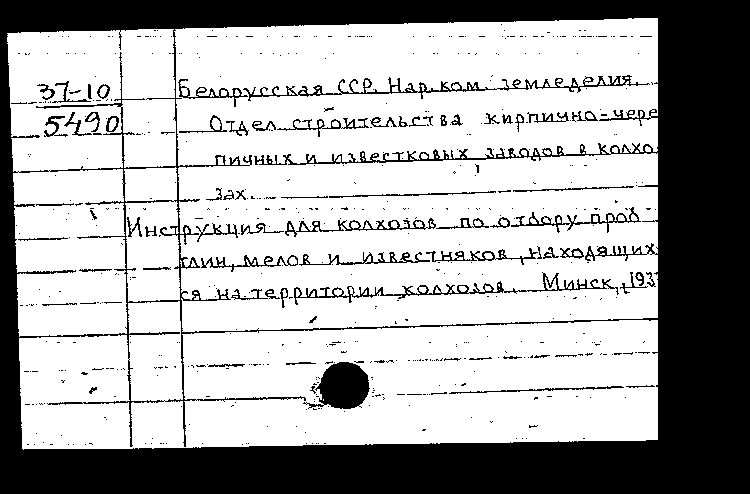 37-10
5490
Белорусская ССР. Нар.ком. земледелия.
Отдел строительства кирпично-чере
пичных и известковых заводов в колхо
зах.
Инструкция для колхозов по отбору проб
глин, мелов и известняков, находящих
ся на территории колхозов. Минск, 1937